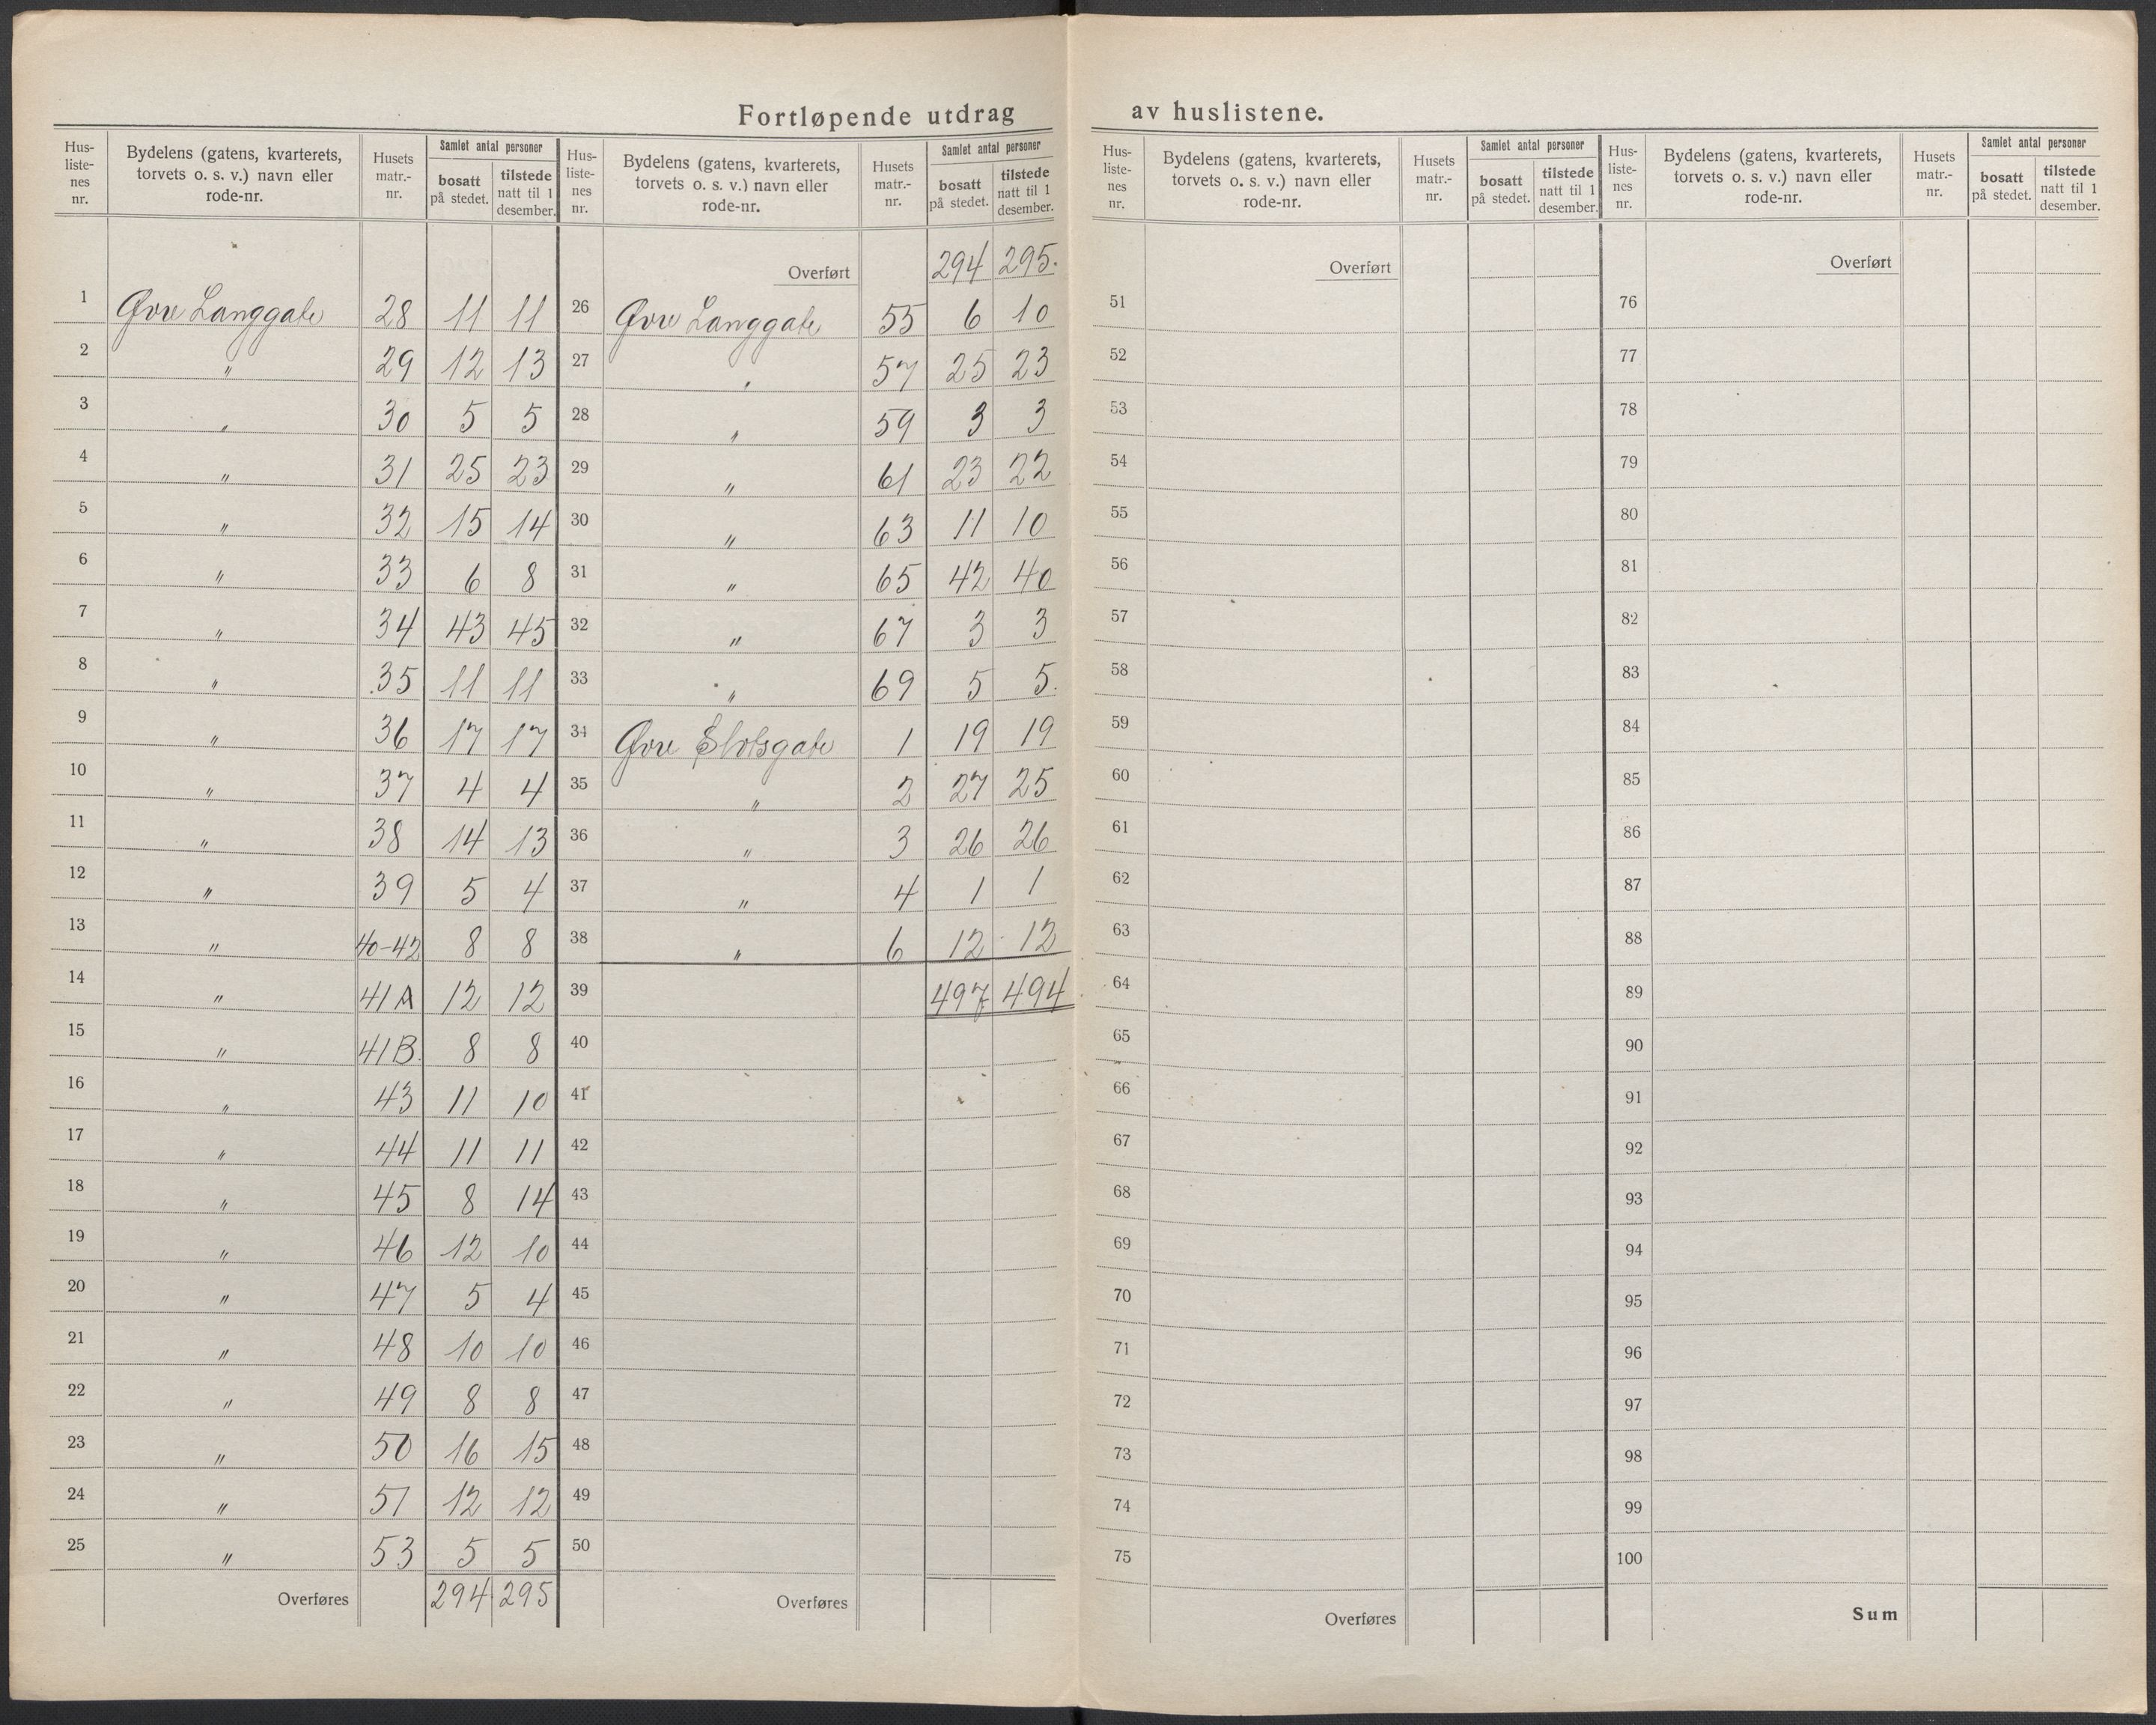 Fortløpende utdrag av huslistene.
Hus-listenes nr. | Bydelens (gatens, kvarterets, torvets o. s. v.) navn eller rode-nr. | Husets matr.-nr. | Samlet antal personer bosatt på stedet. | tilstede natt til 1 desember.
1 Øvre Langgate 28 11 11
2 " 29 12 13
3 " 30 5 5
4 " 31 25 23
5 " 32 15 14
6 " 33 6 8
7 " 34 43 45
8 " 35 11 11
9 " 36 17 17
10 " 37 4 4
11 " 38 14 13
12 " 39 5 4
13 " 40-42 8 8
14 " 41A 12 12
15 " 41B. 8 8
16 " 43 11 10
17 " 44 11 11
18 " 45 8 14
19 " 46 12 10
20 " 47 5 4
21 " 48 10 10
22 " 49 8 8
23 " 50 16 15
24 " 51 12 12
25 " 53 5 5
Overføres 294 295
Hus-listenes nr. | Bydelens (gatens, kvarterets, torvets o. s. v.) navn eller rode-nr. | Husets matr.-nr. | Samlet antal personer bosatt på stedet. | tilstede natt til 1 desember.
Overført 294 295.
26 Øvre Langgate 55 6 10
27 " 57 25 23
28 " 59 3 3
29 " 61 23 22
30 " 63 11 10
31 " 65 42 40
32 " 67 3 3
33 " 69 5 5.
34 Øvre Slotsgate 1 19 19
35 " 2 27 25
36 " 3 26 26
37 " 4 1 1
38 " 6 12 12
39 497 494
40
41
42
43
44
45
46
47
48
49
50
Overføres
Hus-listenes nr. | Bydelens (gatens, kvarterets, torvets o. s. v.) navn eller rode-nr. | Husets matr.-nr. | Samlet antal personer bosatt på stedet. | tilstede natt til 1 desember.
Overført
51
52
53
54
55
56
57
58
59
60
61
62
63
64
65
66
67
68
69
70
71
72
73
74
75
Overføres
Hus-listenes nr. | Bydelens (gatens, kvarterets, torvets o. s. v.) navn eller rode-nr. | Husets matr.-nr. | Samlet antal personer bosatt på stedet. | tilstede natt til 1 desember.
Overført
76
77
78
79
80
81
82
83
84
85
86
87
88
89
90
91
92
93
94
95
96
97
98
99
100
Sum